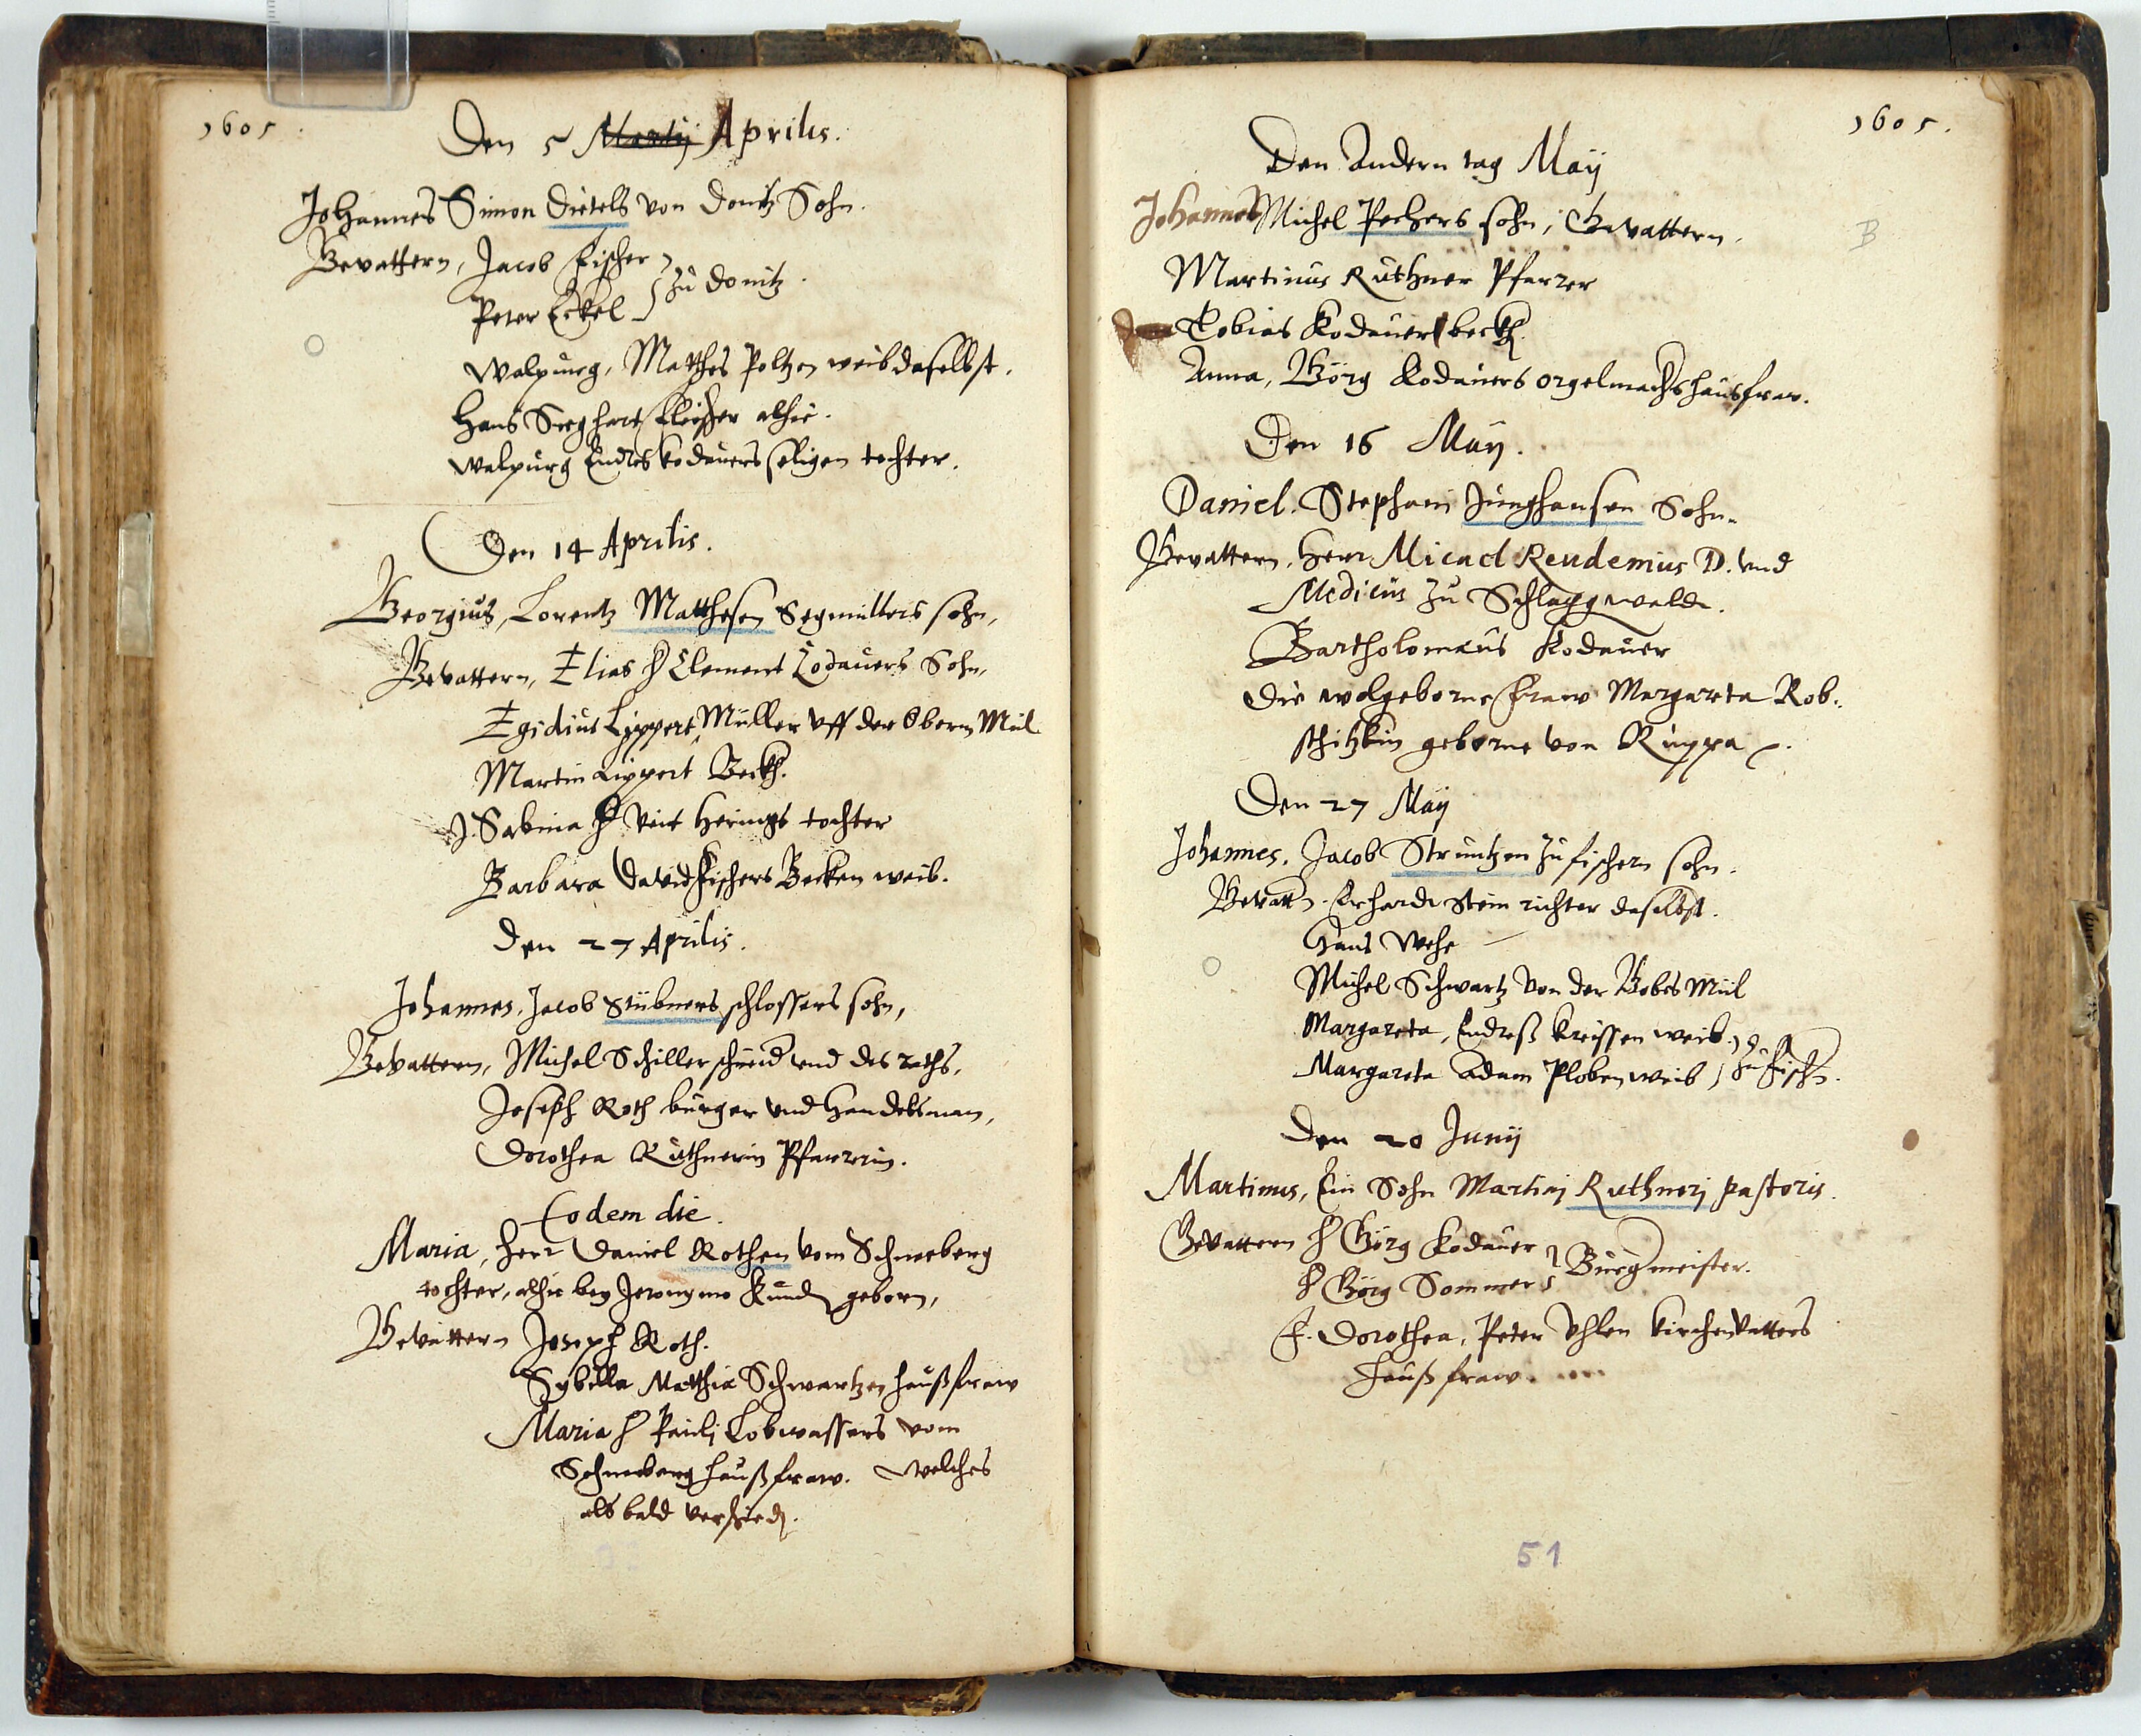 1605.
Den 5 Martij Aprilis.
Johannes Simon Dietels von Donitz Sohn.
Gevattern, Jacob Fischer
Peter Eckel } zu Donitz.
Walpurg, Matthes Poltzen weib daselbst.
Hans Sieghart fleischer alhie.
Walpurg Endres Kodauers seligen tochter.
Den 14 Aprilis.
Georgius, Lorentz Matthesen Segmullers sohn,
Gevattern, Elias H Clement Codauers Sohn,
Egidius Lippert, Müller vff der Obern Mül
Martin Lippert Beckh.
J. Sabina H Veit Herings tochter
Barbara David Fischers Becken weib.
Den 27 Aprilis.
Johannes, Jacob Stübners schlossers sohn,
Gevattern, Michel Schiller schmid vnd des raths,
Joseph Roth burger vnd Handelsman,
Dorothea Ruthnerin Pfarrerin.
Eodem die.
Maria, Herr Daniel Rothen vom Schneeberg
tochter, alhie bey Jeronymo geborn,
Gevattern Joseph Roth.
Sybilla Matthiae Schwartzen haußfraw
Maria H Pauli Lobwassers vom
Schneeberg haußfraw. welches
als bald verschied.
1605.
Den Andern tag Maij
Johannes Michel Pechers sohn, Gevattern.
Martinus Ruthner Pfarrer
Tobias Kodauer beckh.
Anna, Görg Kodauers orgelmachers hausfraw.
B
Den 16 Maij.
Daniel. Stephani Junghansen Sohn.
Gevattern, Herr Micael Reudenius D. vnd
Medicus zu Schlaggwald.
Bartholomaeus Kodauer
Die wolgeborne Fraw Margareta Rob.
schitzkin geborne von Ruppa
Den 27 Maij
Johannes, Jacob Struntzen zu fischern sohn.
Gevattn. Erhardt Stein richter daselbst.
Hans Wehe
Michel Schwartz von der Gobes Mül
Margareta, Endreß Kreissen weib
Margareta Adam Ploben weib } zu fischn.
Den 20 Junij
Martinus, Ein Sohn Martinj Ruthnerj pastoris.
Gevattern H Görg Kodauer
H Görg Sommer } Burgmeister.
F. Dorothea, Peter Vhlen Kirchenvatters
haußfraw.
51